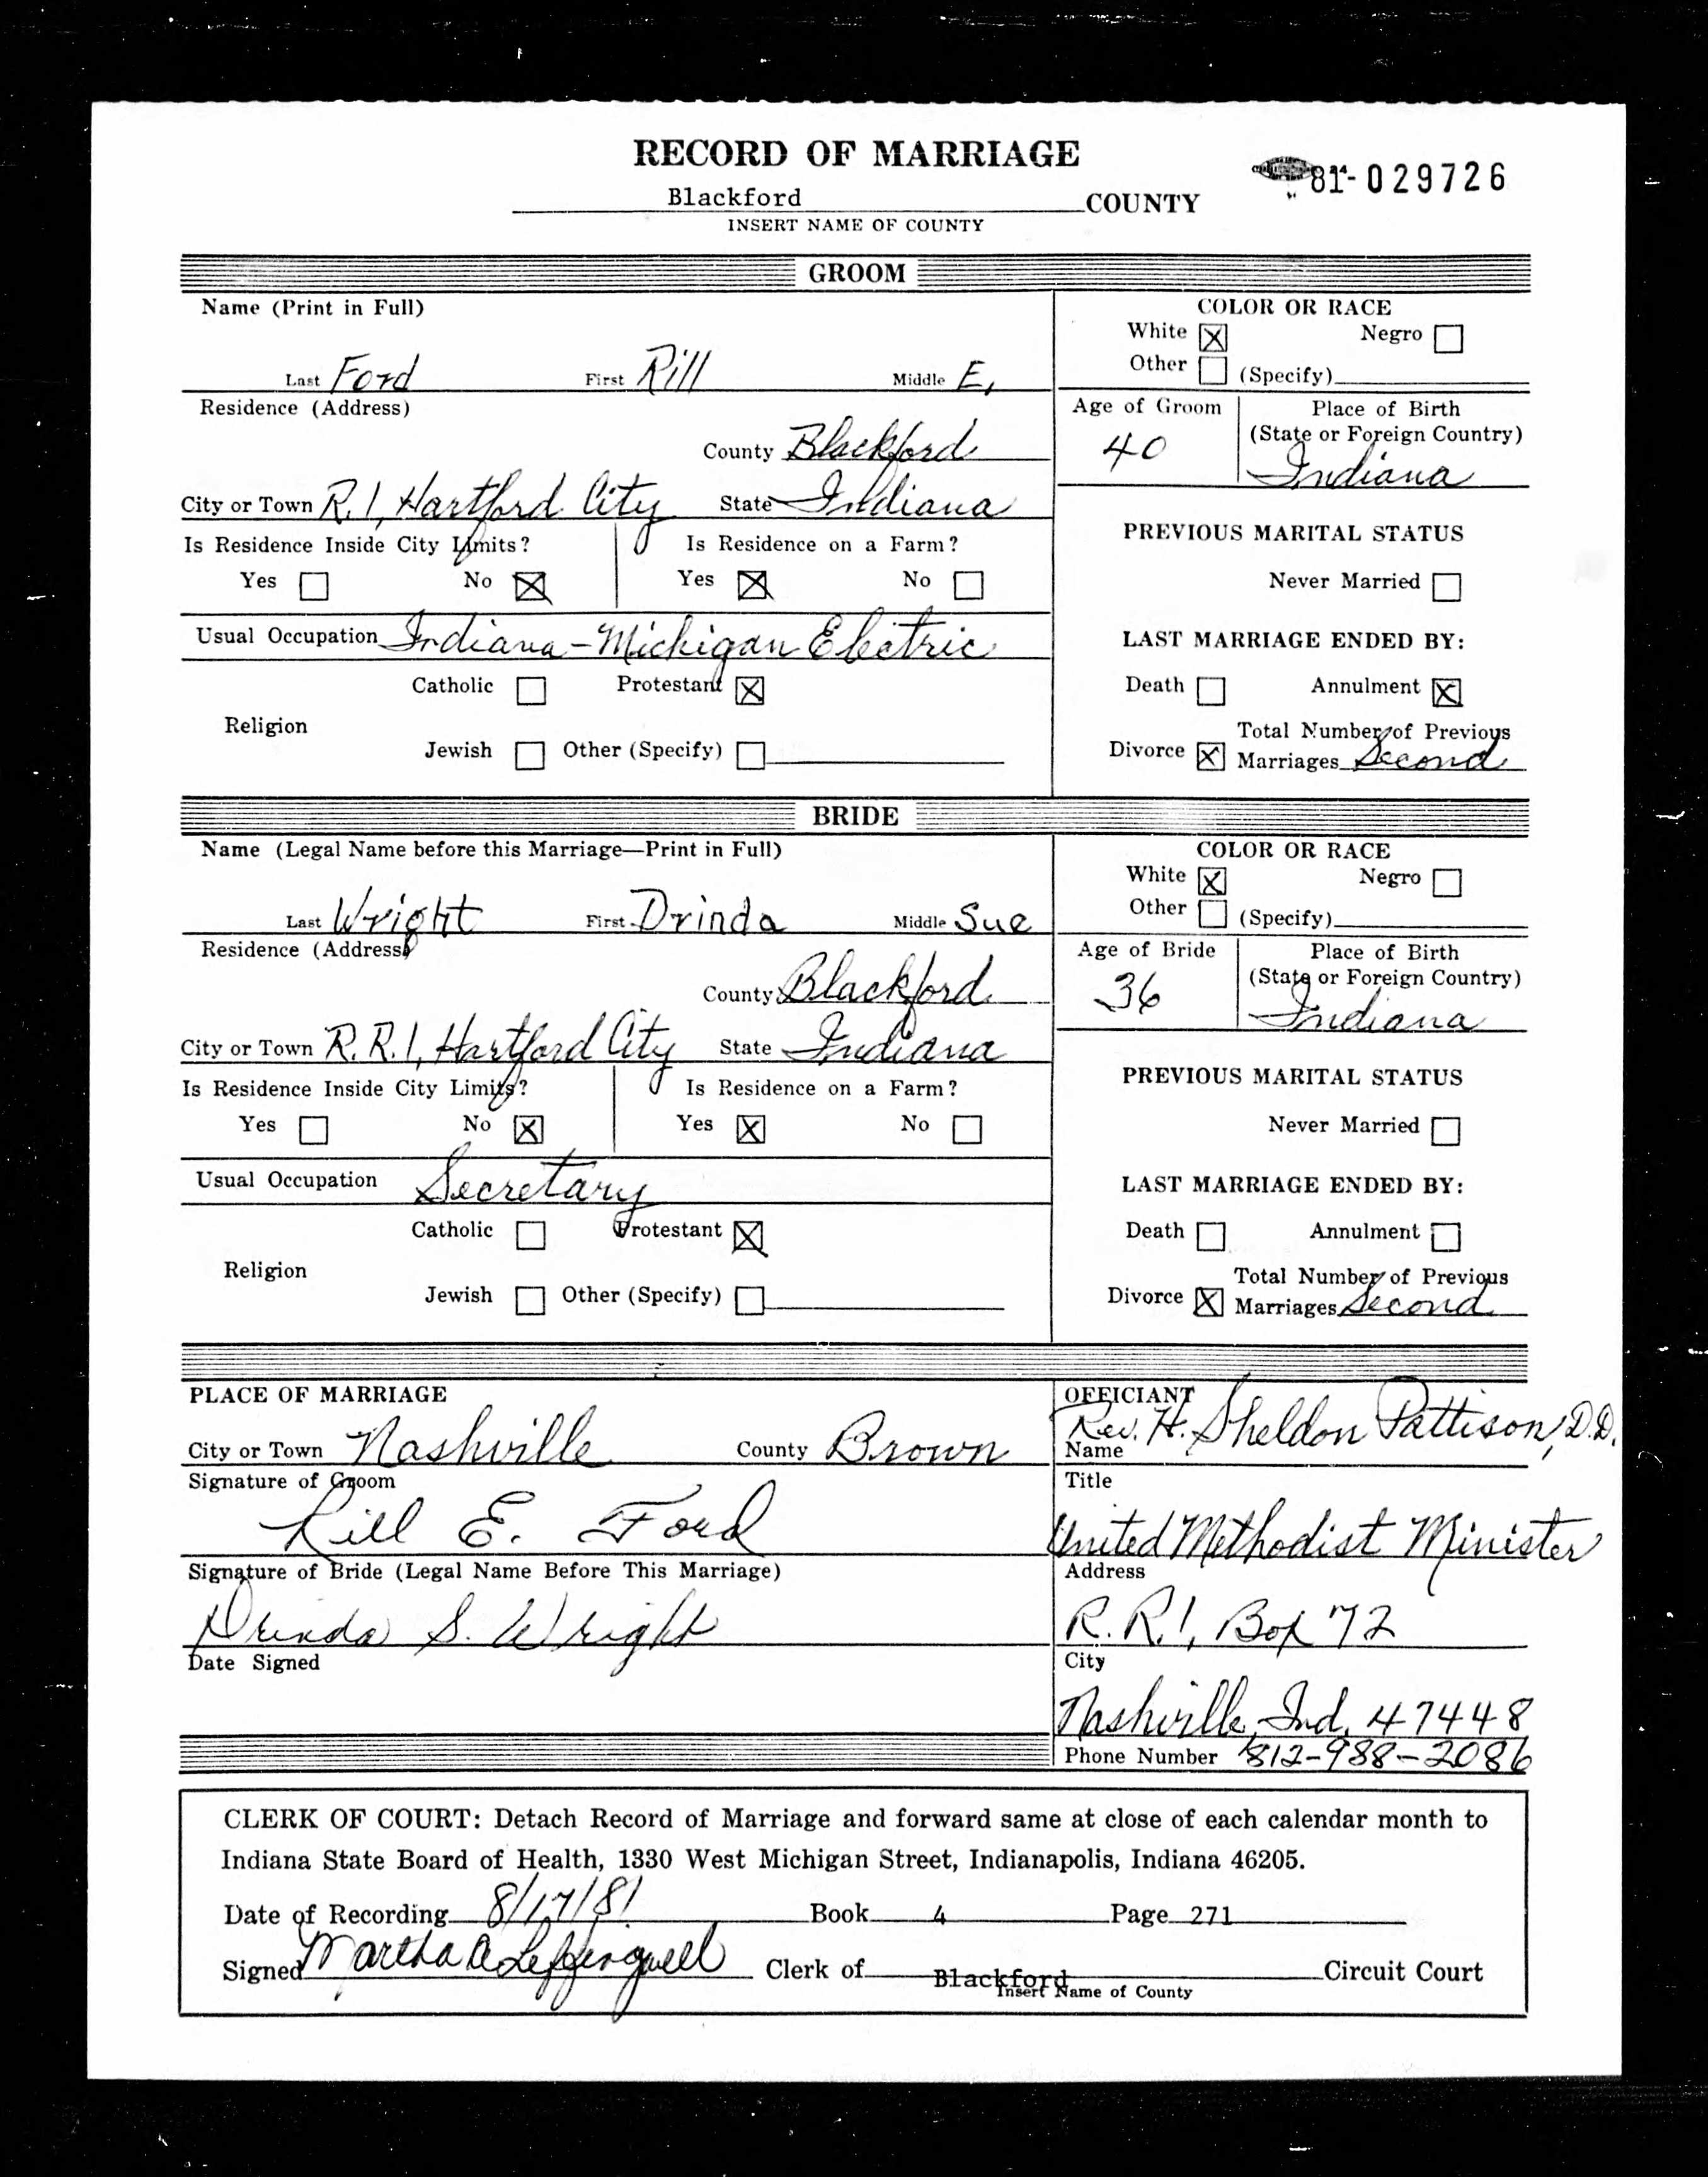 RECORD OF MARRIAGE
81-029726
Blackford COUNTY
INSERT NAME OF COUNTY
GROOM
Name (Print in Full)
Last Ford First Rill Middle E.
COLOR OR RACE
White X Negro
Other (Specify)
Residence (Address)
County Blackford
City or Town R. 1, Hartford City State Indiana
Age of Groom 40
Place of Birth
(State or Foreign Country)
Indiana
Is Residence Inside City Limits? Is Residence on a Farm?
Yes No X Yes X No
PREVIOUS MARITAL STATUS
Never Married
Usual Occupation Indiana-Michigan Electric
LAST MARRIAGE ENDED BY:
Catholic Protestant X
Religion
Jewish Other (Specify)
Death Annulment X
Divorce X Total Number of Previous
Marriages Second
BRIDE
Name (Legal Name before this Marriage—Print in Full)
Last Wright First Drinda Middle Sue
COLOR OR RACE
White X Negro
Other (Specify)
Residence (Address)
County Blackford
City or Town R.R. 1, Hartford City State Indiana
Age of Bride 36
Place of Birth
(State or Foreign Country)
Indiana
Is Residence Inside City Limits? Is Residence on a Farm?
Yes No X Yes X No
PREVIOUS MARITAL STATUS
Never Married
Usual Occupation Secretary
LAST MARRIAGE ENDED BY:
Catholic Protestant X
Religion
Jewish Other (Specify)
Death Annulment
Divorce X Total Number of Previous
Marriages Second
PLACE OF MARRIAGE
City or Town Nashville County Brown
Signature of Groom
Rill E. Ford
Signature of Bride (Legal Name Before This Marriage)
Drinda S. Wright
Date Signed
OFFICIANT
Rev. H. Sheldon Pattison, D.D.
Name
Title
United Methodist Minister
Address
R.R. 1, Box 72
City
Nashville, Ind. 47448
Phone Number 812-988-2086
CLERK OF COURT: Detach Record of Marriage and forward same at close of each calendar month to
Indiana State Board of Health, 1330 West Michigan Street, Indianapolis, Indiana 46205.
Date of Recording 8/17/81 Book 4 Page 271
Signed Martha A Leffingwell Clerk of Blackford Circuit Court
Insert Name of County